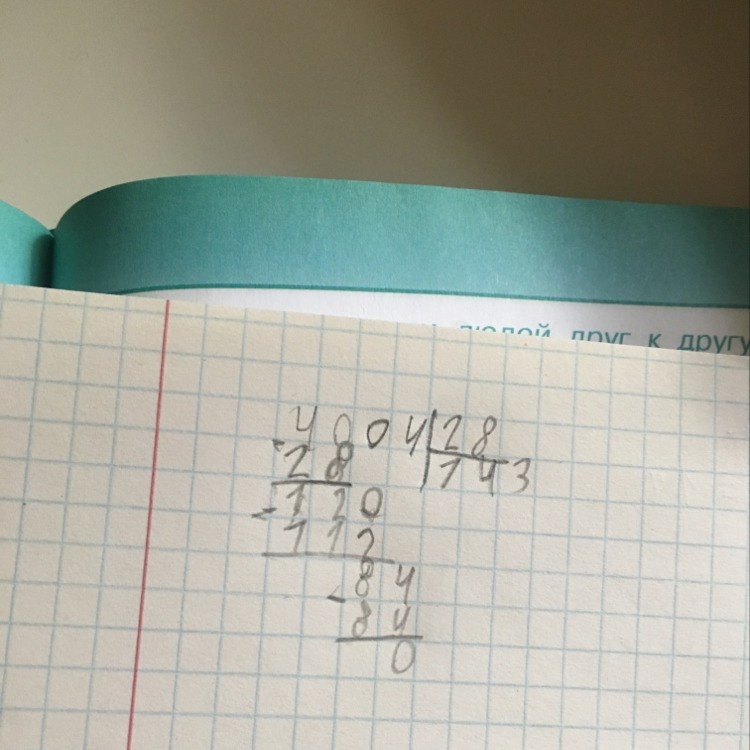 людей друг к другу
4004|28
- 28 |143
- 120
112
- 84
84
0